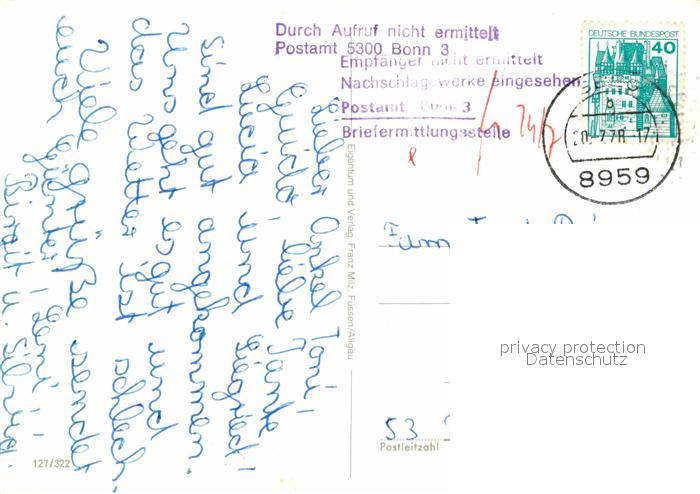 Durch Aufruf nicht ermittelt
Postamt 5300 Bonn 3
Empfänger nicht ermittelt
Nachschlagewerke eingesehen
Postamt Bonn 3
Briefermittlungsstelle
DEUTSCHE BUNDESPOST
40
8959
Lieber Onkel Toni!
Guido! liebe Tante
Lucia! und Siegried!
sind gut angekommen.
Uns geht es gut und
das Wetter ist schlech.
Viele Grüße sendet
euch Günter! Leni!
Birgit u. Silvia.
Eigentum und Verlag: Franz Milz, Füssen/Allgäu
Fam
53
Postleitzahl
127/322
privacy protection
Datenschutz